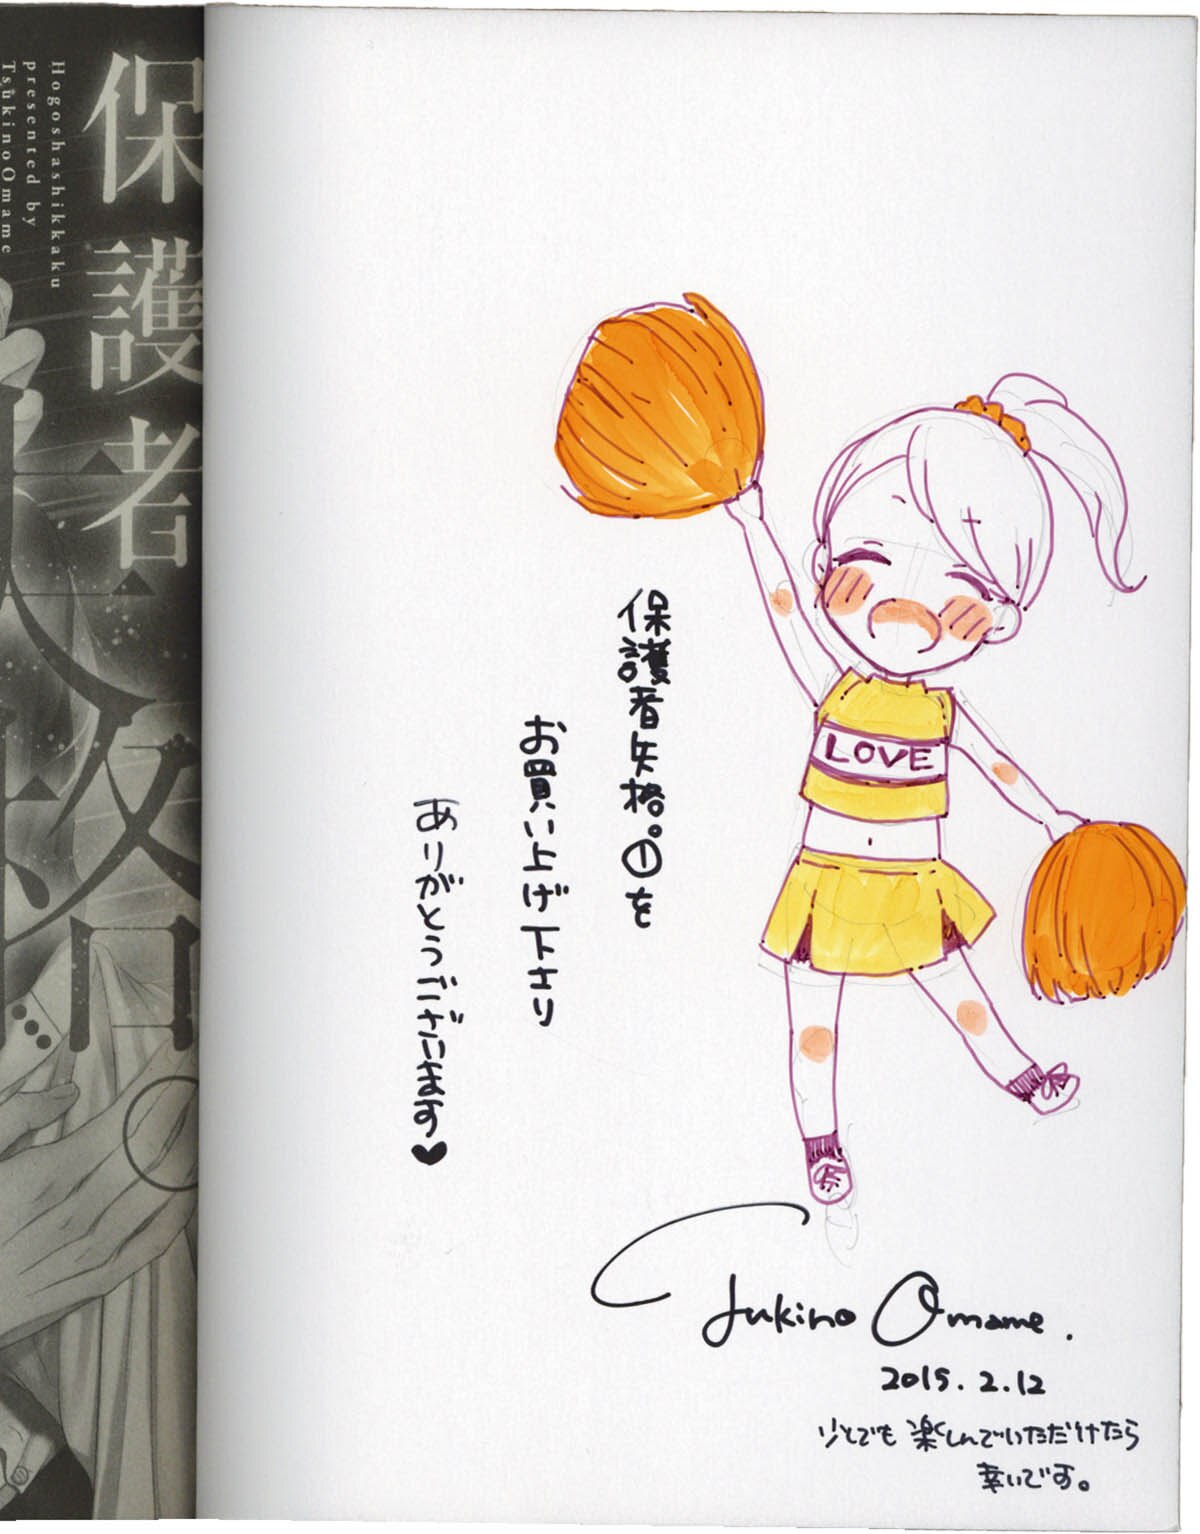 保護者
失格
Hogoshashikkaku
presented by
TsukinoOmame
保護者失格。①を
お買い上げ下さり
ありがとうございます♥
LOVE
Tsukino Omame.
2015.2.12
少しでも楽しんでいただけたら
幸いです。